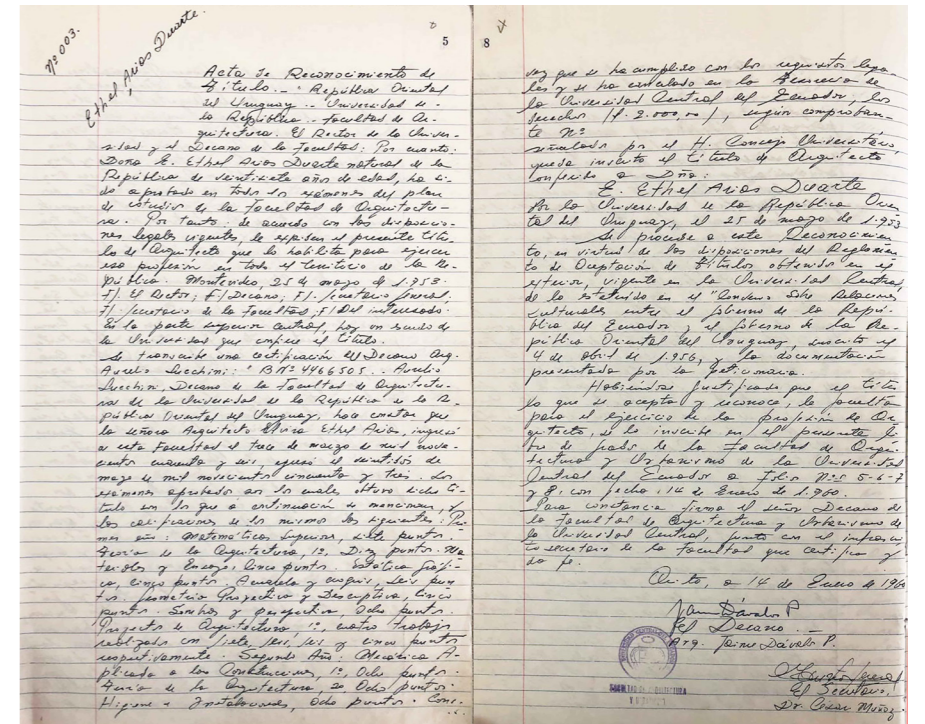 Nº 003.
Ethel Arios Duarte.
5
Acta de Reconocimiento de
Título._ "República Oriental
del Uruguay._ Universidad de
la República._ Facultad de Ar-
quitectura. El Rector de la Univer-
sidad y el Decano de la Facultad: Por cuanto:
Doña E. Ethel Arios Duarte natural de la
República de veintisiete años de edad, ha si-
do aprobada en todos los exámenes del plan
de estudios de la Facultad de Arquitectu-
ra. Por tanto: de acuerdo con las disposicio-
nes legales vigentes, le expiden el presente títu-
lo de Arquitecto que lo habilita para ejercer
esa profesión en todo el territorio de la Re-
pública. Montevideo, 25 de mayo de 1.953.
F). El Rector; F) Decano; F). Secretario General;
F). Secretario de la Facultad; F) Del interesado.
En la parte superior central, hay un escudo de
la Universidad que confiere el título.
Se transcribe una certificación del Decano Arq.
Aurelio Lucchini: "B Nº 4466505._ Aurelio
Lucchini, Decano de la Facultad de Arquitectu-
ra de la Universidad de la República de la R-
pública Oriental del Uruguay, hace constar que
la señora Arquitecto Elvira Ethel Arios, ingresó
a esta Facultad el trece de marzo de mil nove-
cientos cuarenta y seis egresó el veintidós de
mayo de mil novecientos cincuenta y tres. Los
exámenes aprobados con los cuales obtuvo dicho tí-
tulo son los que a continuación se mencionan, y
las calificaciones de los mismos las siguientes: Pri-
mer año: Matemáticas Superiores, siete puntos.
Teoría de la Arquitectura, 1º, Diez puntos. Ma-
teriales y Ensayo, Cinco puntos. Estática gráfi-
ca, cinco puntos. Acuarela y croquis, Seis pun-
tos. Geometría Proyectiva y Descriptiva, Cinco
puntos. Sombras y perspectiva, Ocho puntos.
Proyectos de Arquitectura, 1º, cuatro trabajos
realizados con siete, seis, seis y cinco puntos
respectivamente. Segundo Año: Mecánica A-
plicada a las Construcciones, 1º, Ocho puntos.
Teoría de la Arquitectura, 2º Ocho puntos.
Higiene e Instalaciones, Ocho puntos. Cons-
8
vez que se ha cumplido con los requisitos lega-
les y se ha cancelado en la Tesorería de
la Universidad Central del Ecuador, los
derechos (S/. 2.000,00), según comproban-
te Nº
señalados por el H. Consejo Universitario,
queda inscrito el título de Arquitecto
conferido a Dña:
E. Ethel Arios Duarte
Por la Universidad de la República Orien-
tal del Uruguay, el 25 de mayo de 1.953
Se procede a este Reconocimien-
to, en virtud de las disposiciones del Reglamen-
to de Aceptación de títulos obtenidos en el
exterior, vigente en la Universidad Central,
de lo estatuido en el "Convenio sobre Relaciones
Culturales entre el Gobierno de la Repú-
blica del Ecuador y el Gobierno de la Re-
pública Oriental del Uruguay, suscrito el
4 de abril de 1.956, y la documentación
presentada por la peticionaria.
Habiéndose justificado que el títu-
lo que se acepta y reconoce, la faculta
para el ejercicio de la profesión de Ar-
quitecto, se lo inscribe en el presente li-
bro de grado de la Facultad de Arqui-
tectura y Urbanismo de la Universidad
Central del Ecuador a Folios Nos 5-6-7
y 8; con fecha: 14 de Enero de 1.960.
Para constancia firma el señor Decano de
la Facultad de Arquitectura y Urbanismo de
la Universidad Central, junto con el infrascri-
to secretario de la Facultad que certifica y
da fe.
Quito, a 14 de Enero de 1960
Jaime Dávalos P
El Decano
Arq. Jaime Dávalos P.
FACULTAD DE ARQUITECTURA
El Secretario,
Dr. César Muñoz